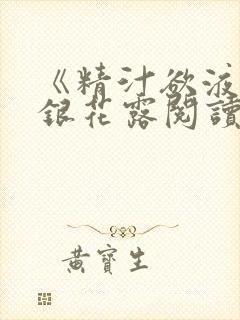 《精汁欲液
銀花露閱讀
黃寶生